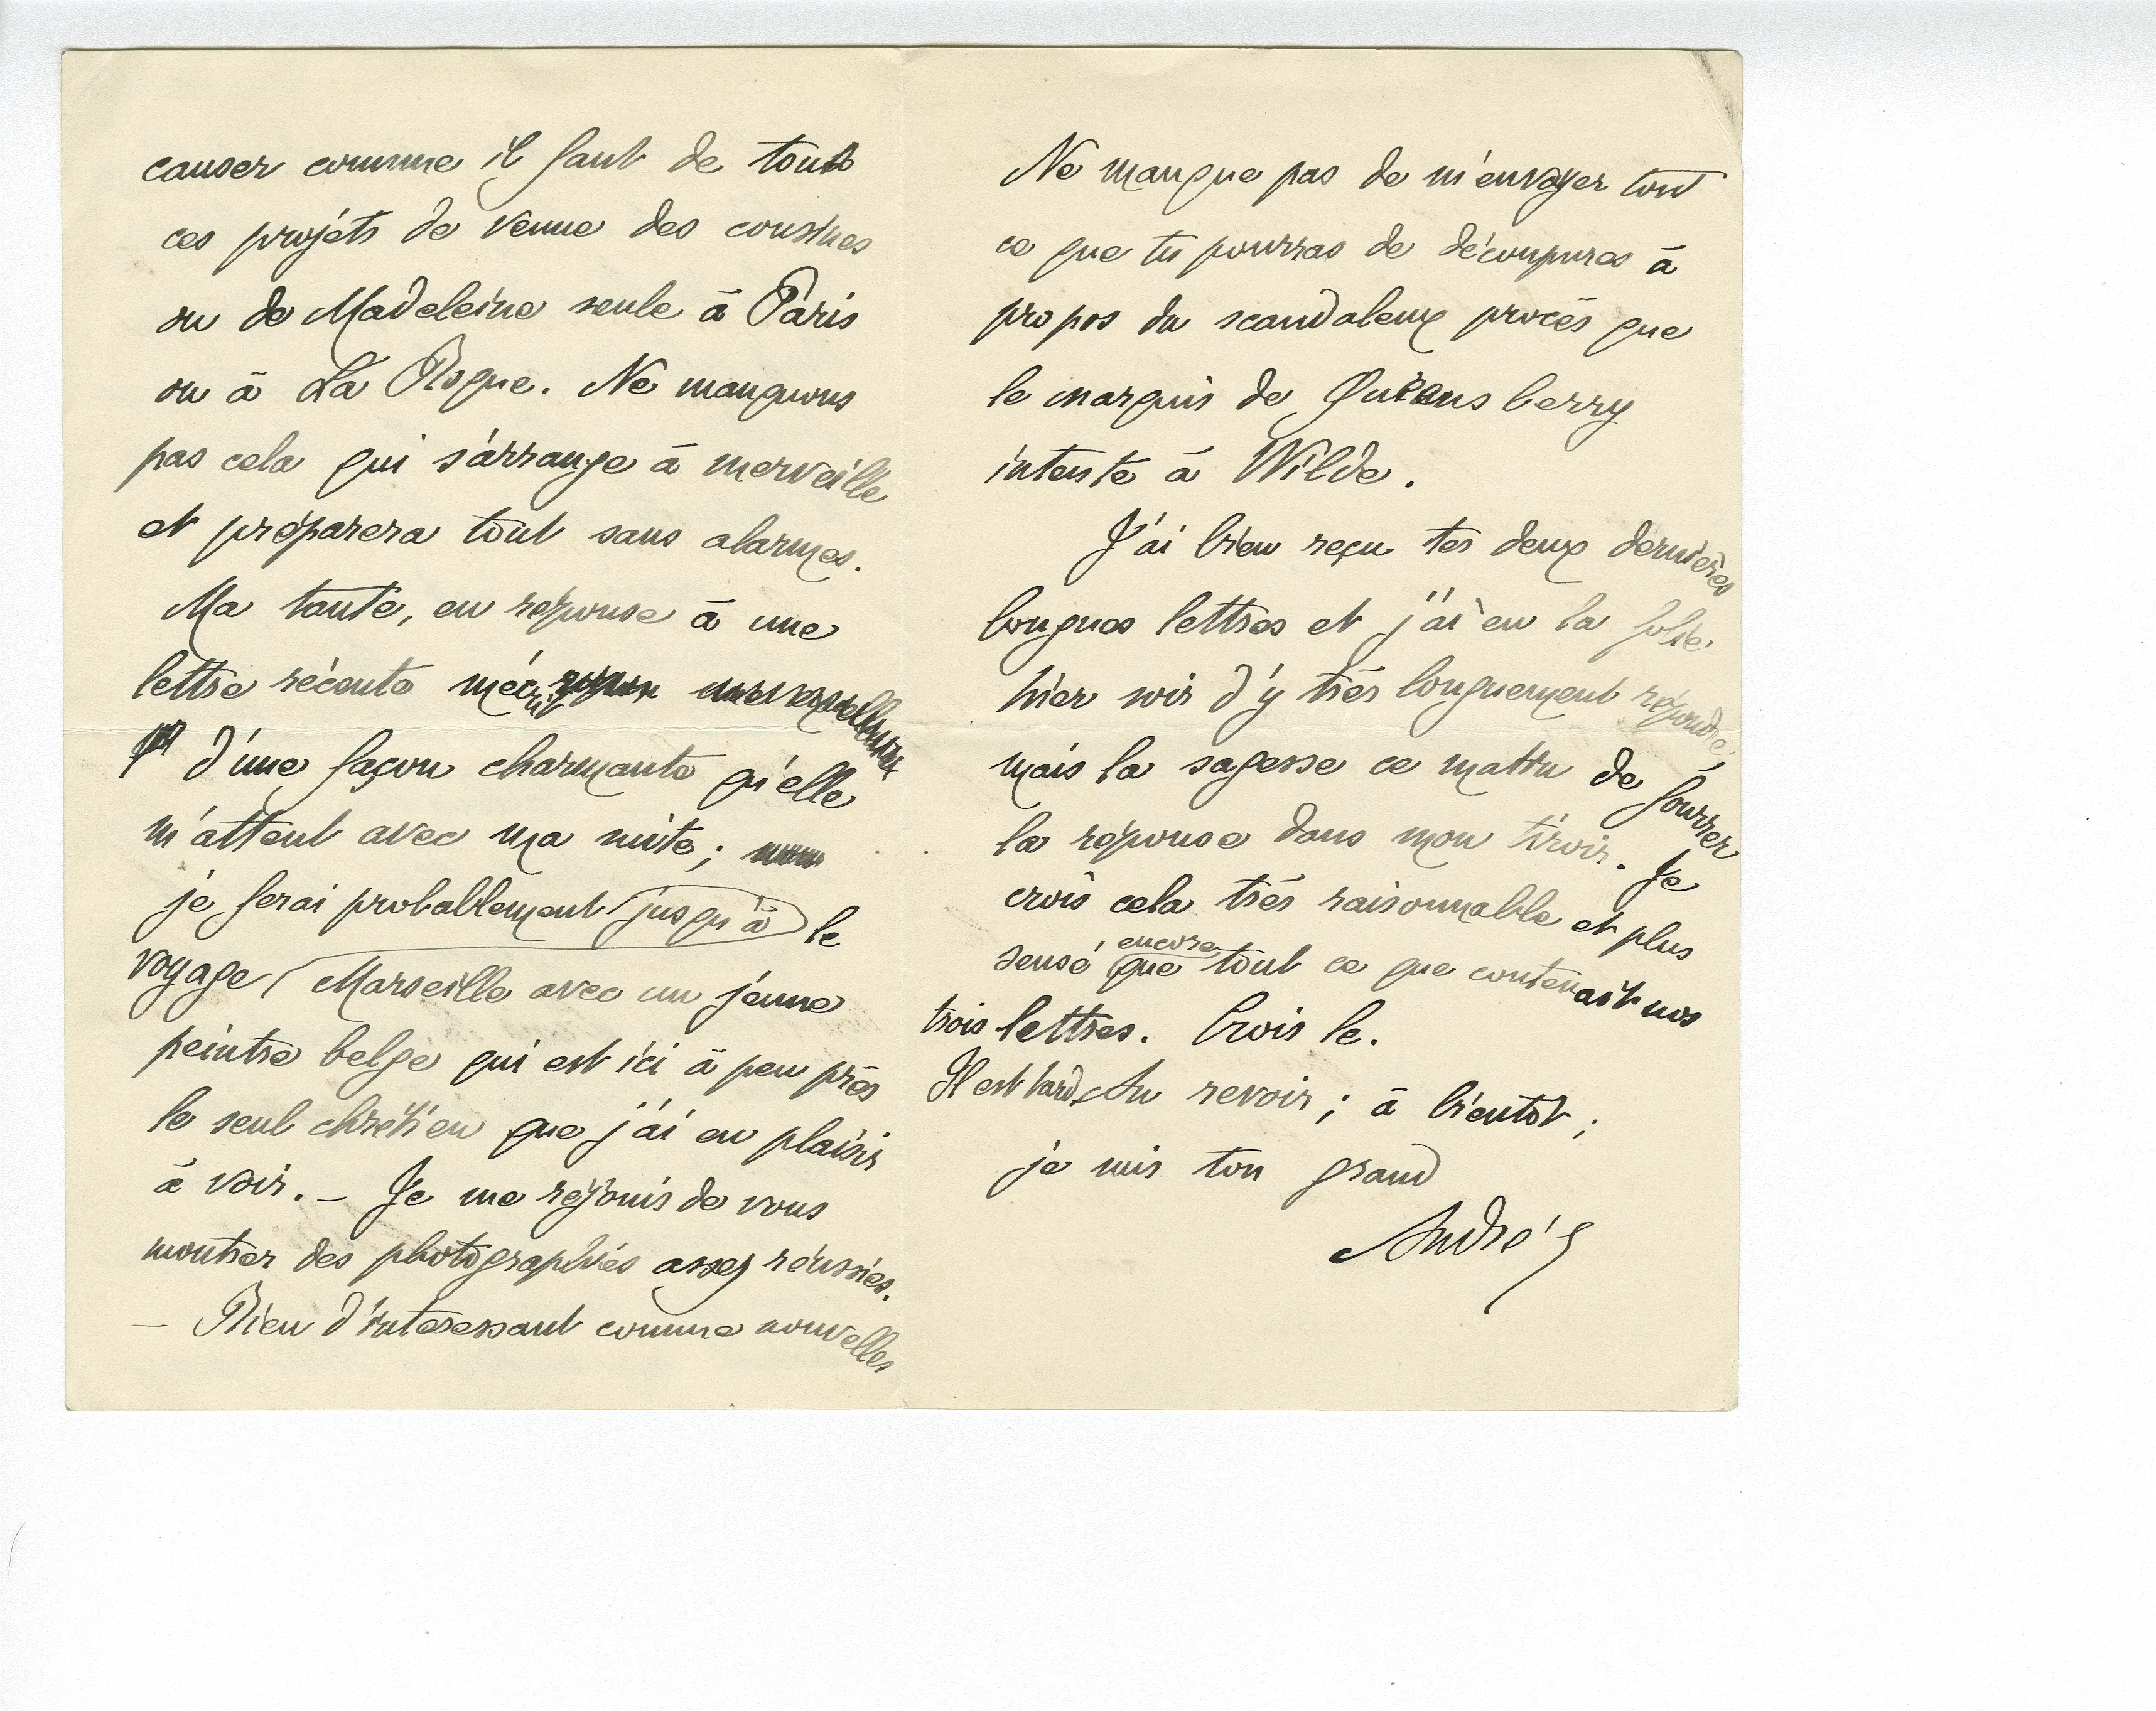 causer comme il faut de touts
ces projets de venue des cousines
ou de Madeleine seule à Paris
ou à La Roque. Ne manquons
pas cela qui s'arrange à merveille
et préparera tout sans alarmes.
Ma tante, en reponse à une
lettre récente m'écrit
d'une façon charmante qu'elle
m'attent avec ma suite;
je ferai probablement jusqu'à le
voyage Marseille avec un jeune
peintre belge qui est ici à peu près
le seul chrétien que j'ai eu plaisir
à voir. – Je me réjouis de vous
montrer des photographies assez réussies.
– Rien d'intéressant comme nouvelles
Ne manque pas de m'envoyer tout
ce que tu pourras de découpures à
propos du scandaleux procès que
le marquis de Queensberry
intente à Wilde.
J'ai bien reçu tes deux dernières
longues lettres et j'ai eu la folie
hier soir d'y très longuement répondre,
mais la sagesse ce matin de fourrer
la réponse dans mon tiroir. Je
crois cela très raisonnable et plus
encore
sensé que tout ce que contenait nos
trois lettres. Crois le.
Il est tard. Au revoir; à bientôt;
je suis ton grand
André G